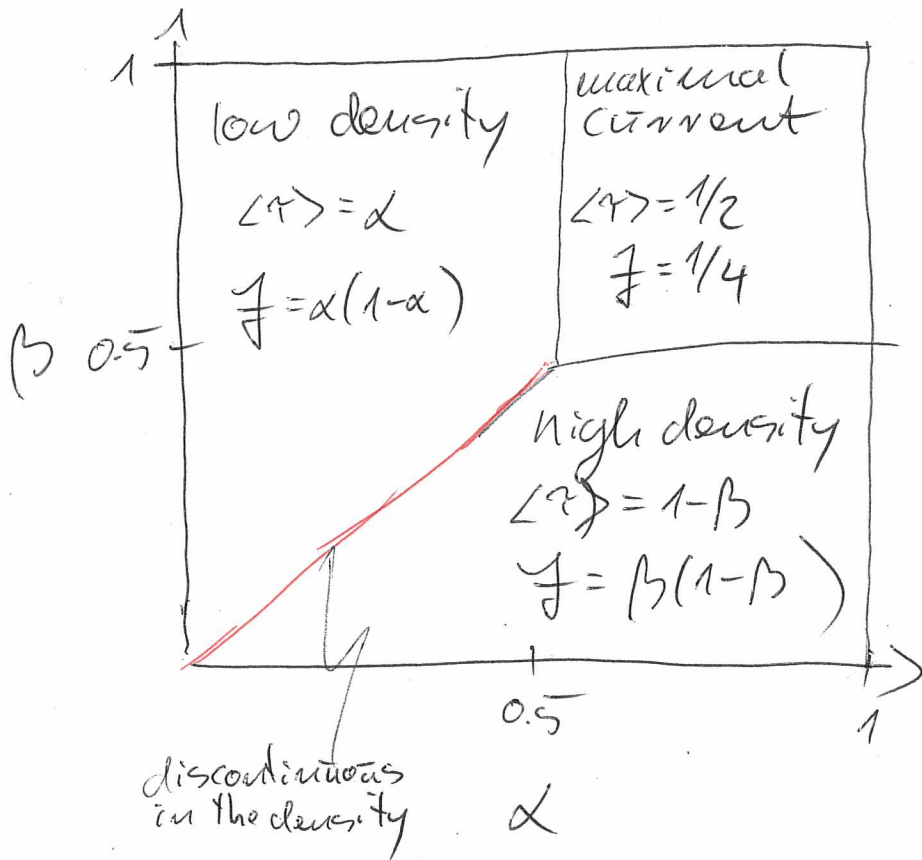 1
1
low density
<τ> = α
J = α(1-α)
maximal
current
<τ> = 1/2
J = 1/4
β 0.5
high density
<τ> = 1-β
J = β(1-β)
0.5
1
discontinuous
in the density
α